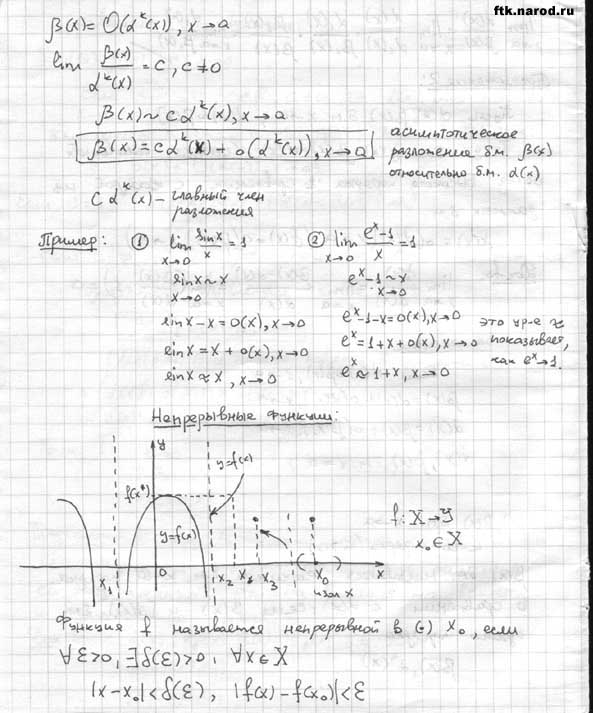 ftk.narod.ru
β(x) = O(α^k(x)), x→a
lim β(x)/α^k(x) = c, c≠0
β(x) ~ cα^k(x), x→a
β(x) = cα^k(x) + o(α^k(x)), x→a
асимптотическое
разложение б.м. β(x)
относительно б.м. α(x)
cα^k(x) – главный член
разложения
Пример: ① lim_{x→0} sinx/x = 1
sinx ~ x
x→0
sinx – x = o(x), x→0
sinx = x + o(x), x→0
sinx ≈ x, x→0
② lim_{x→0} (e^x – 1)/x = 1
e^x – 1 ~ x
x→0
e^x – 1 – x = o(x), x→0
e^x = 1 + x + o(x), x→0
e^x ≈ 1 + x, x→0
это ур-е
показывает,
как e^x → 1.
Непрерывные функции:
y
y=f(x)
f(x*)
y=f(x)
0
x₁
x₂
x₃
x₀
x
изол x
f: X→Y
x₀∈X
Функция f называется непрерывной в (·) x₀, если
∀ε>0, ∃δ(ε)>0, ∀x∈X
|x – x₀|<δ(ε), |f(x) – f(x₀)|<ε